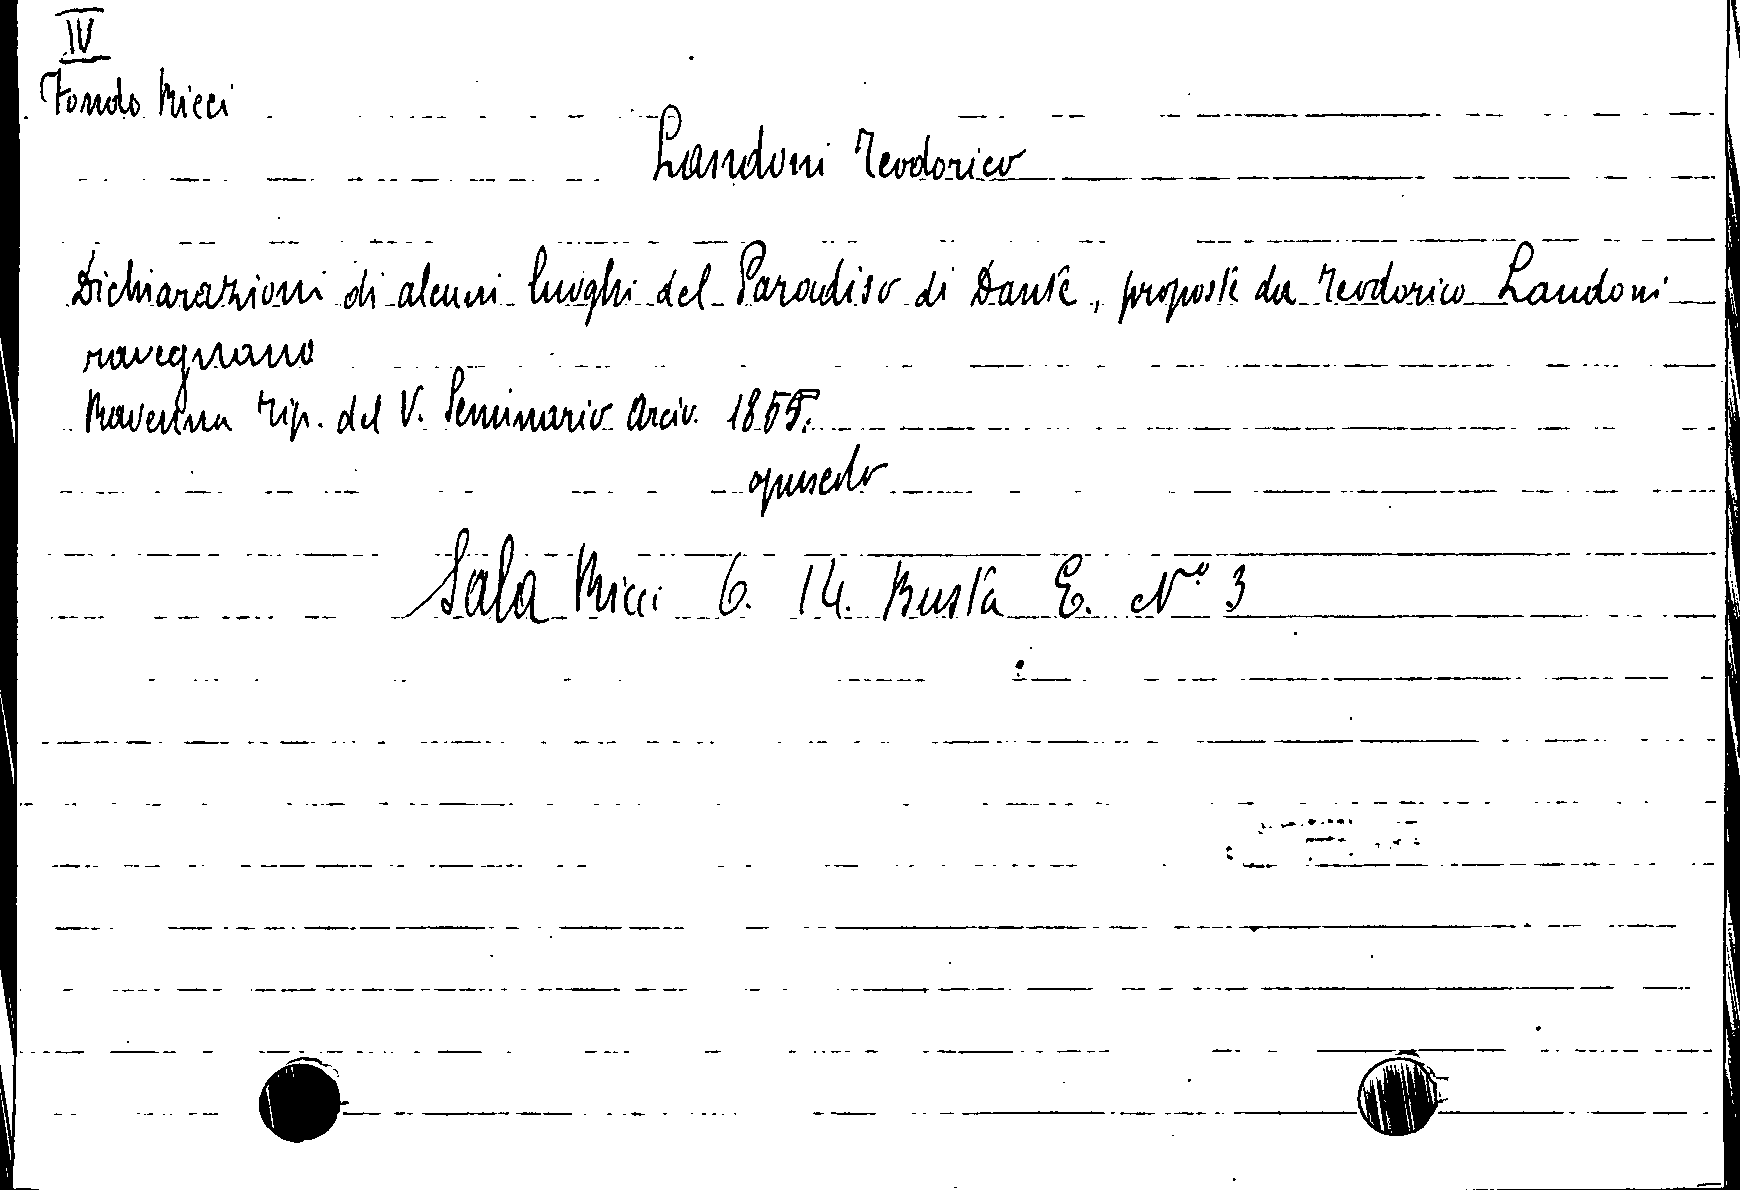 IV
Fondo Ricci
Landoni Teodorico
Dichiarazioni di alcuni luoghi del Paradiso di Dante, proposte da Teodorico Landoni
ravegnano
Ravenna Tip. del V. Seminario Arciv. 1859.
opuscolo
Sala Ricci 6. 14. Busta E. N° 3